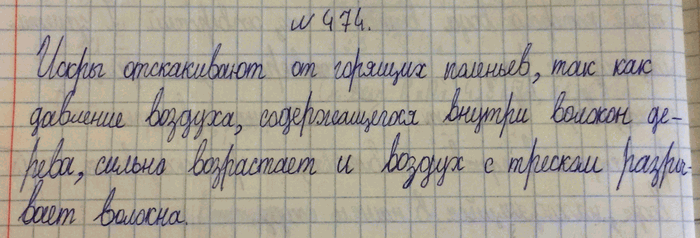 № 474.
Искры отскакивают от горящих поленьев, так как
давление воздуха, содержащегося внутри волокон де-
рева, сильно возрастает и воздух с треском разры-
вает волокна.